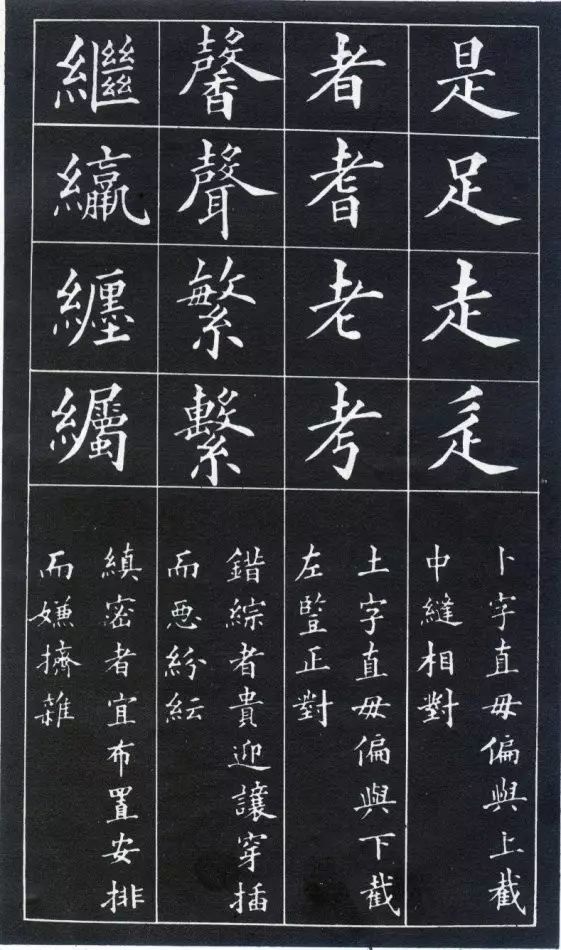 是足走辵
卜字直毋偏與上截
中縫相對
者耆老考
土字直毋偏與下截
左豎正對
馨聲繁繫
錯綜者貴迎讓穿插
而惡紛紜
繼䌴纏
縝密者宜布置安排
而嫌擠雜